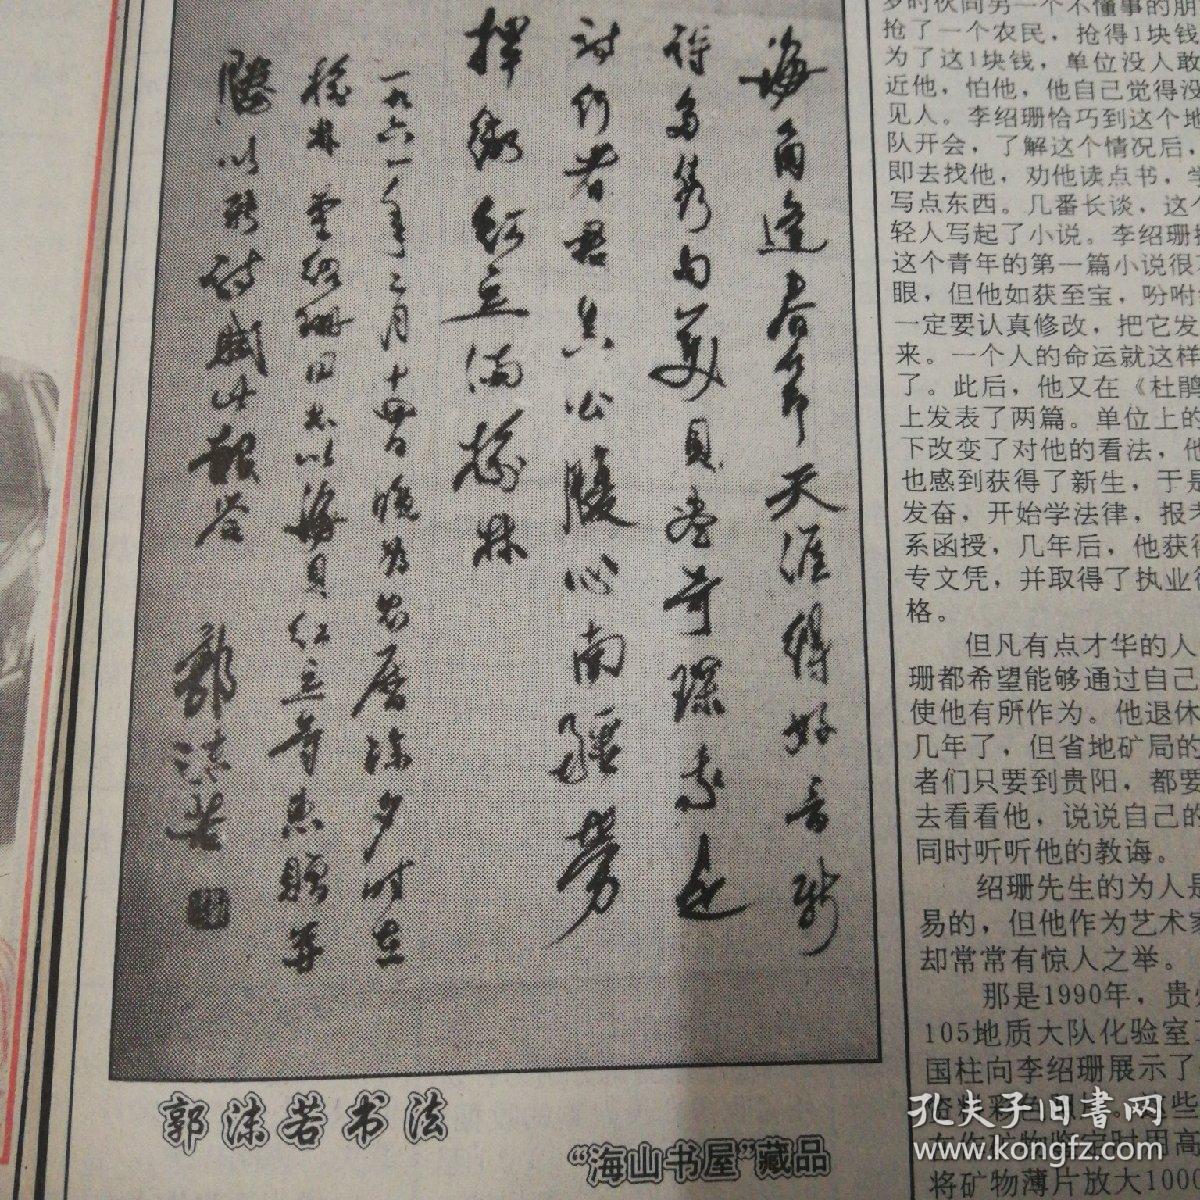 海角逢春节天涯得好音新
诗多隽句美贝尽奇琛我是
诗行者君其公
心南疆劳
挥
红立满榆林
一九六一年二月十四日晚为农历除夕时在
榆林
同志以海贝红豆等惠赠并
以新诗赋此报答
郭沫若
郭沫若书法
“海山书屋”藏品
抢了一个农民，抢得1块钱
为了这1块钱，单位没人敢
近他，怕他，他自己觉得没
见人。李绍珊恰巧到这个地
队开会，了解这个情况后，
即去找他，劝他读点书，学
写点东西。几番长谈，这个
轻人写起了小说。李绍珊
这个青年的第一篇小说很
眼，但他如获至宝，吩咐
一定要认真修改，把它发
来。一个人的命运就这样
了。此后，他又在《杜鹃
上发表了两篇。单位上的
下改变了对他的看法，他
也感到获得了新生，于是
发奋，开始学法律，报考
系函授，几年后，他获得
专文凭，并取得了执业律
格。
但凡有点才华的人
珊都希望能够通过自己
使他有所作为。他退休
几年了，但省地矿局的
者们只要到贵阳，都要
去看看他，说说自己的
同时听听他的教诲。
绍珊先生的为人是
易的，但他作为艺术家
却常常有惊人之举。
那是1990年，贵州
105地质大队化验室
国柱向李绍珊展示了
将矿物薄片放大1000
孔夫子旧书网
www.kongfz.com